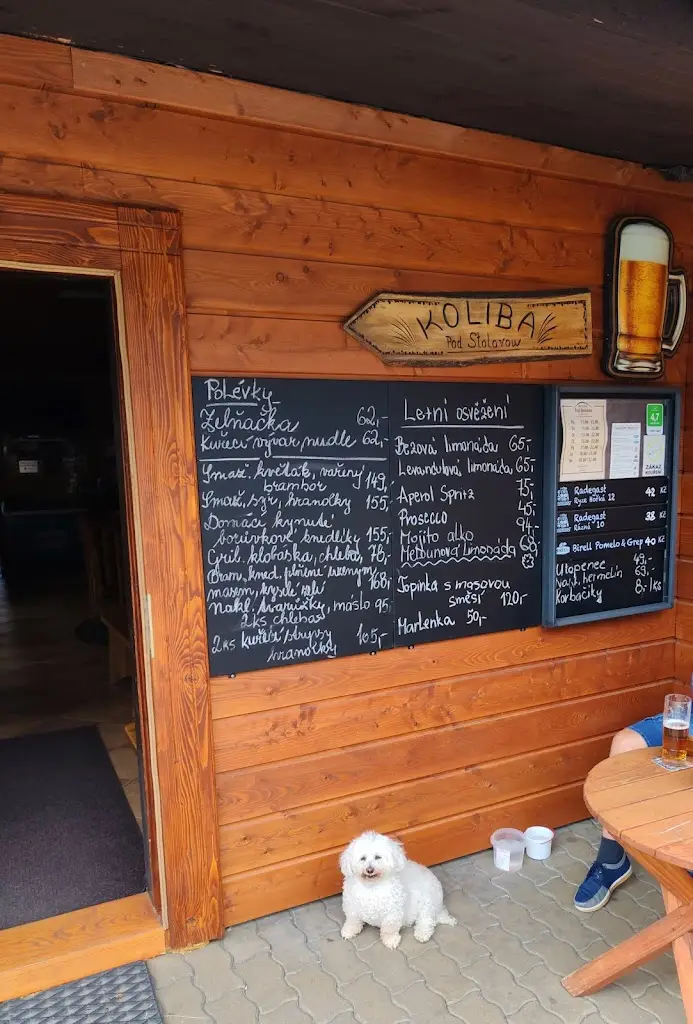 KOLIBA
Pod Stolovou
Polévky
Zelňačka 62,-
Kuřecí vývar, nudle 62,-
Smaž. květák, vařený brambor 149,-
Smaž. sýr, hranolky 155,-
Domácí kynuté
borůvkové knedlíky 155,-
Gril. klobáska, chleba 78,-
Bram. kned. plněné uzeným 168,-
masem, kyselé zelí
Nakl. tvarůžky, máslo 95,-
2 ks chleba
2 ks kuřecí stripsy 165,-
hranolky
Letní osvěžení
Bezová limonáda 65,-
Levandulová limonáda 65,-
Aperol Spritz
Prosecco 45,-
Mojito alko 94,-
Melounová limonáda
Topinka s masovou
směsí 120,-
Marlenka 50,-
4,7
ZÁKAZ
KOUŘENÍ
Radegast
Ryze hořká 12 42 Kč
Radegast
Rázná 10 38 Kč
Birell Pomelo & Grep 40 Kč
Utopenec 49,-
Nakl. hermelín 69,-
Korbáčiky 8,-/ks